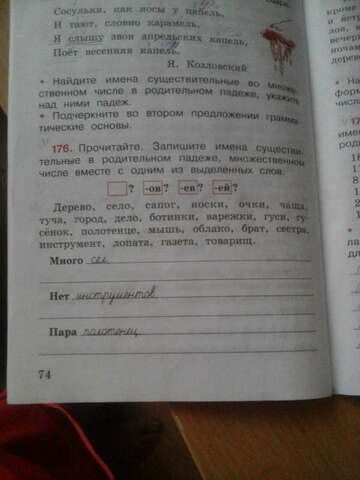 Сосульки, как носы у цапель,
И тают, словно карамель.
Я слышу звон апрельских капель,
Поёт весенняя капель.
Я. Козловский
• Найдите имена существительные во множе-
ственном числе в родительном падеже, укажите
над ними падеж.
• Подчеркните во втором предложении грамма-
тические основы.
176. Прочитайте. Запишите имена существи-
тельные в родительном падеже, множественном
числе вместе с одним из выделенных слов.
? -ов ? -ев ? -ей ?
Дерево, село, сапог, носки, очки, чаща,
туча, город, дело, ботинки, варежки, гуси, гу-
сёнок, полотенце, мышь, облако, брат, сестра,
инструмент, лопата, газета, товарищ.
Много сел
Нет инструментов
Пара полотенец
74